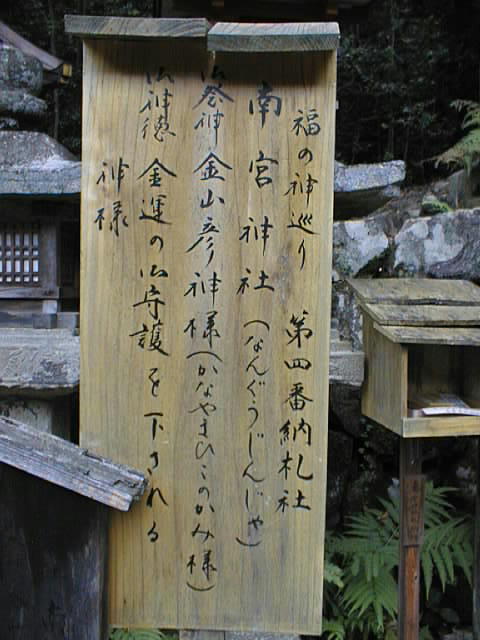 福の神巡り 第四番納札社
南宮神社(なんぐうじんじゃ)
御祭神 金山彦神様(かなやまひこのかみ様)
御神徳 金運の御守護を下される
神様